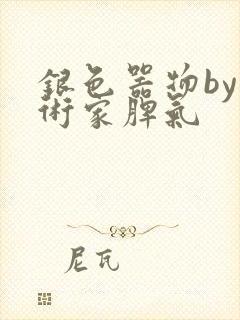 銀色器物by
術家脾氣
尼瓦